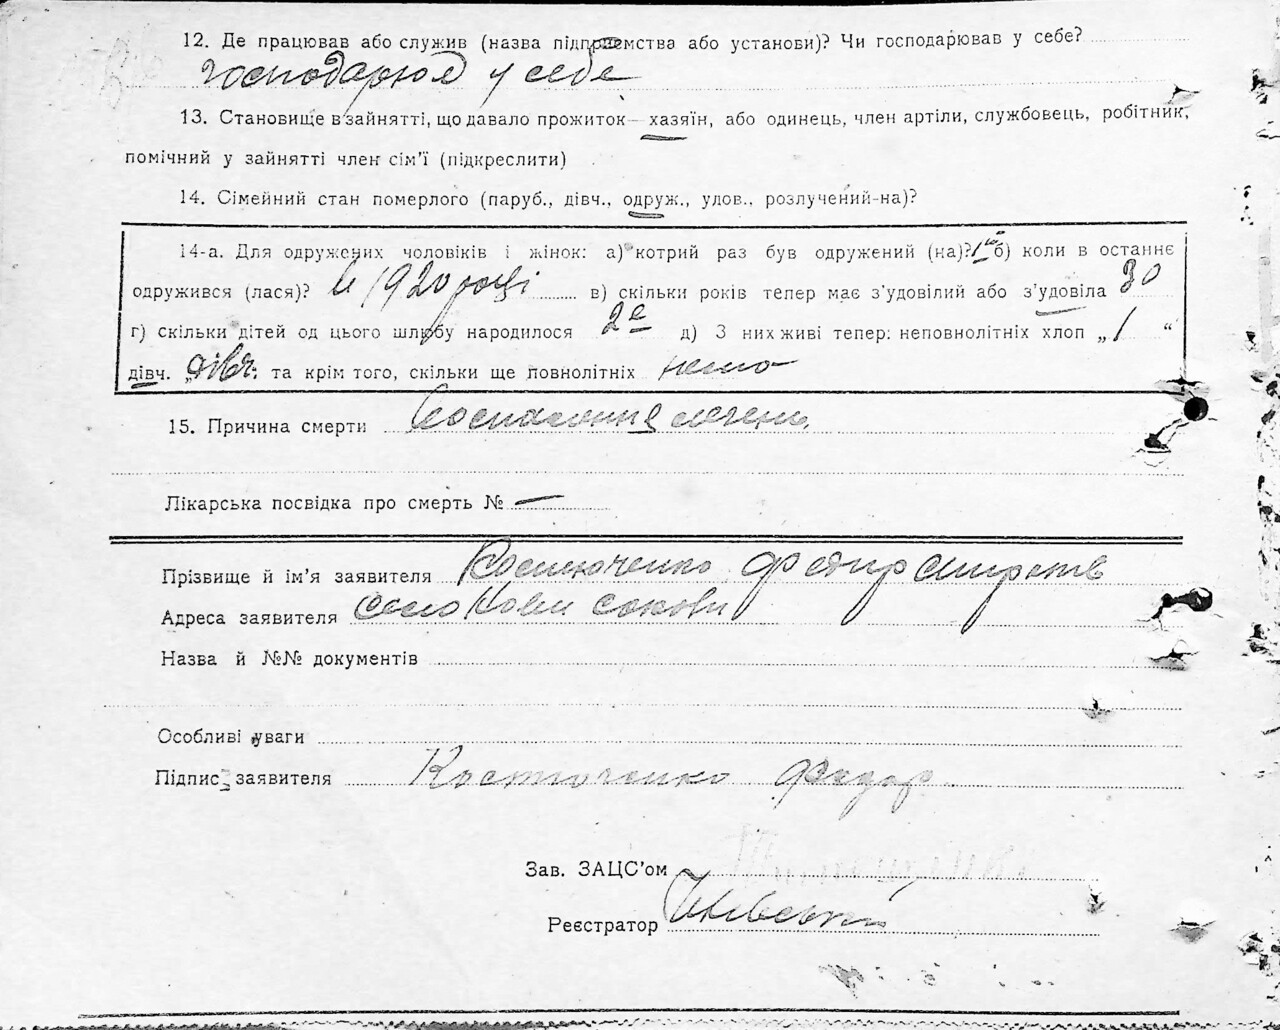 12. Де працював або служив (назва підприємства або установи)? Чи господарював у себе?
господарюв у себе
13. Становище в зайнятті, що давало прожиток — хазяїн, або одинець, член артіли, службовець, робітник,
помічний у зайнятті член сім'ї (підкреслити)
14. Сімейний стан померлого (паруб., дівч., одруж., удов., розлучений-на)?
14-а. Для одружених чоловіків і жінок: а) котрий раз був одружений (на)? 1 б) коли в останнє
одружився (лася)? 1920 році в) скільки років тепер має з'удовілий або з'удовіла 30
г) скільки дітей од цього шлюбу народилося 2е д) З них живі тепер: неповнолітніх хлоп „ 1 “
дівч. „дівч. та крім того, скільки ще повнолітніх нема
15. Причина смерти Воспаление печень
Лікарська посвідка про смерть № —
Прізвище й ім'я заявителя Костюченко
Адреса заявителя село
Назва й №№ документів
Особливі уваги
Підпис заявителя Костюченко Федор
Зав. ЗАЦС'ом
Реєстратор